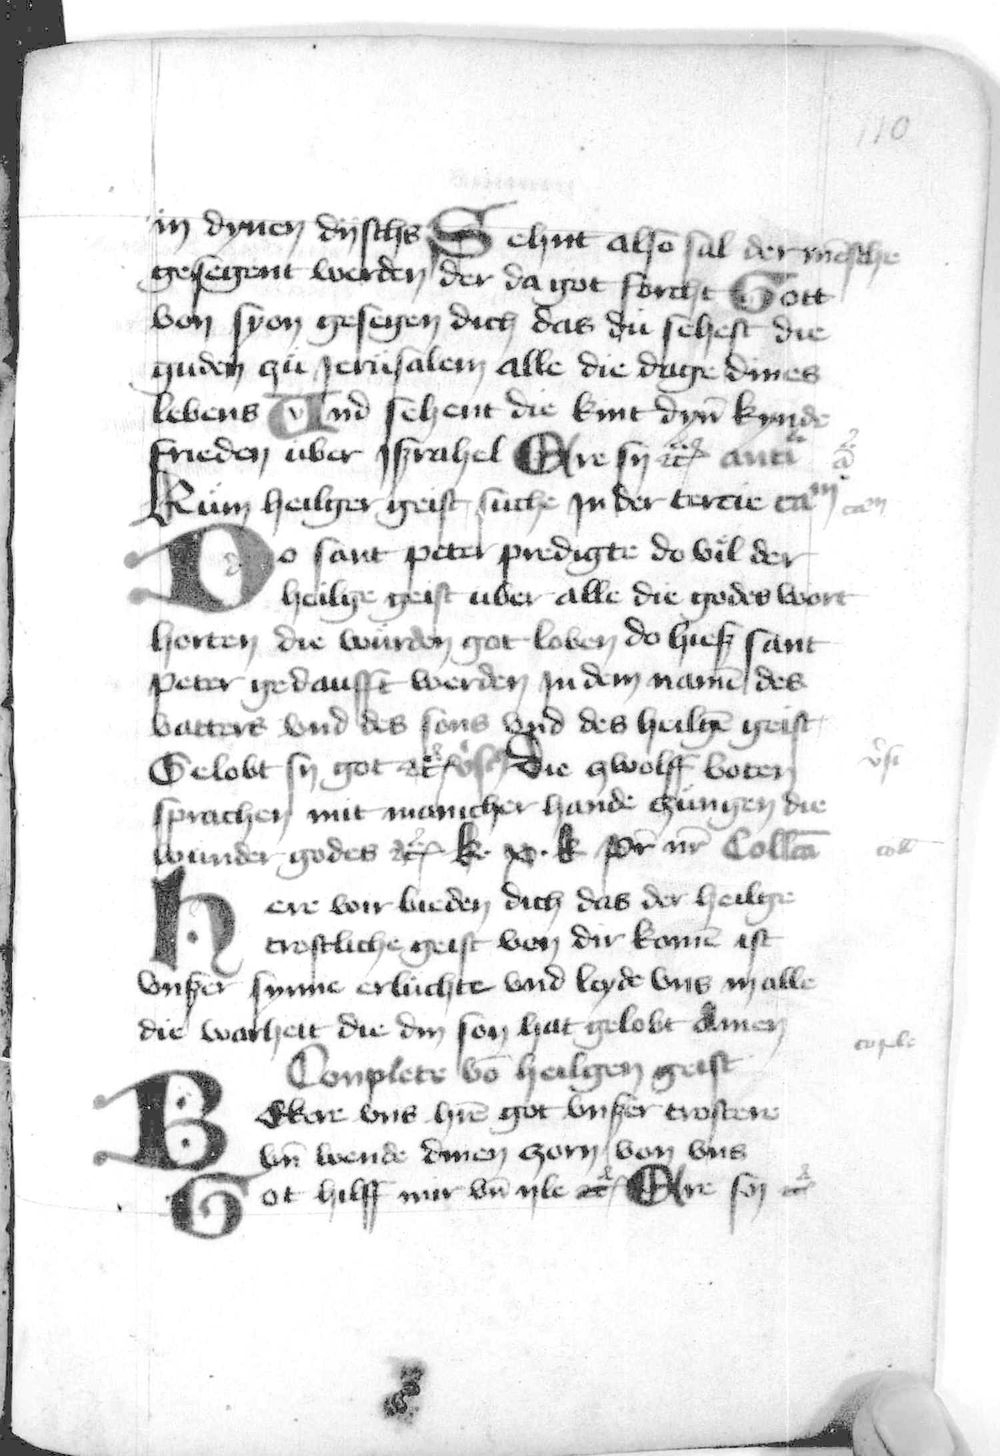 110
in dynen dijschs Sehnt also sal der mēsche
gesegent werden der da got forcht Gott
von syon gesegen dich das dü sehest die
guden zü Jerüsalem alle die dage dines
lebens Und sehent die kint dyn̄ kynde
frieden über Jsrahel Ere sy etc̄ anti
Küm heilger geist süche In der tercie ca
Do sant peter predigte do viel der
heilge geist uber alle die godes wort
horten die würden got loben do hieß sant
Peter gedaufft werden In dem namē des
vatters vnd des sons vnd des heilgē geist
Gelobt sy got etc̄ v̾s Die zwolff boten
v̾si
sprachen mit manicher hande züngen die
wunder godes etc̄ k. xp. k pr̄ nr̄ Collcā
coll
Here wir bieden dich das der heilge
trostliche geist von dir komē ist
vnßer synne erlüchte vnd leyde vns in alle
die warheit die din son hat gelobt Amen
Conplete vō heilgen geist
cōple
Bekere vns hrē got vnßer trostere
vn̄ wende dinen zorn von vns
Got hilff mir vn̄ yle etc̄ Ere sy etc̄